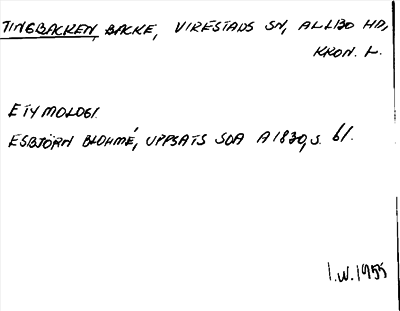 TINGBACKEN, BACKE, VIRESTADS SN, ALLBO HD,
KRON. L.
ETYMOLOGI.
ESBJÖRN BLOHMÉ, UPPSATS SOA A1830, S. 61.
I.W. 1955